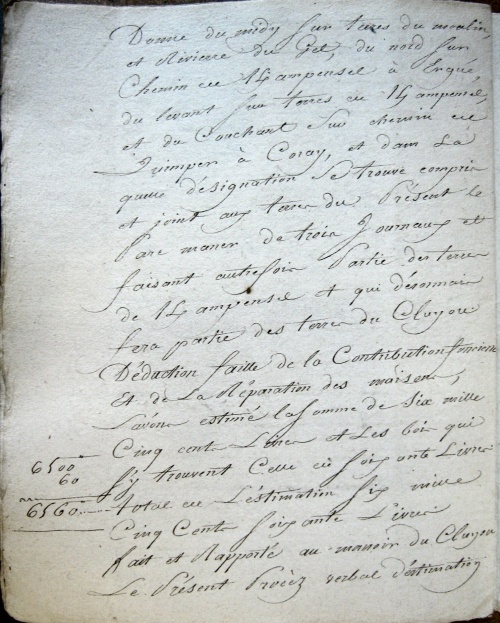 Donne du midy sur terres du moulin,
et Riviere du Jet, du nord sur
Chemin de L4ampensel à Ergué,
du levant sur terres de L4ampensel,
et du Couchant sur chemin de
Quimper à Coray, et dans La
quelle désignation se trouve compris
et joint aux terres du Présent le
Parc maner de trois Journaux et
faisant autrefois Partie des terres
de L4ampensel et qui désormais
fera partie des terres du Cluyou
Déduction faitte de la Contribution fonciere
Et de La Réparation des maisons,
L'avons estimé la somme de Six mille
Cinq cents Livres et Les bois qui
6500
60 s'y trouvent Celle de soixante Livres
6560 total de L'estimation Six mille
Cinq Cents soixante Livres
fait et Rapporté au manoir du Cluyou
Le Présent Procèz verbal d'estimation